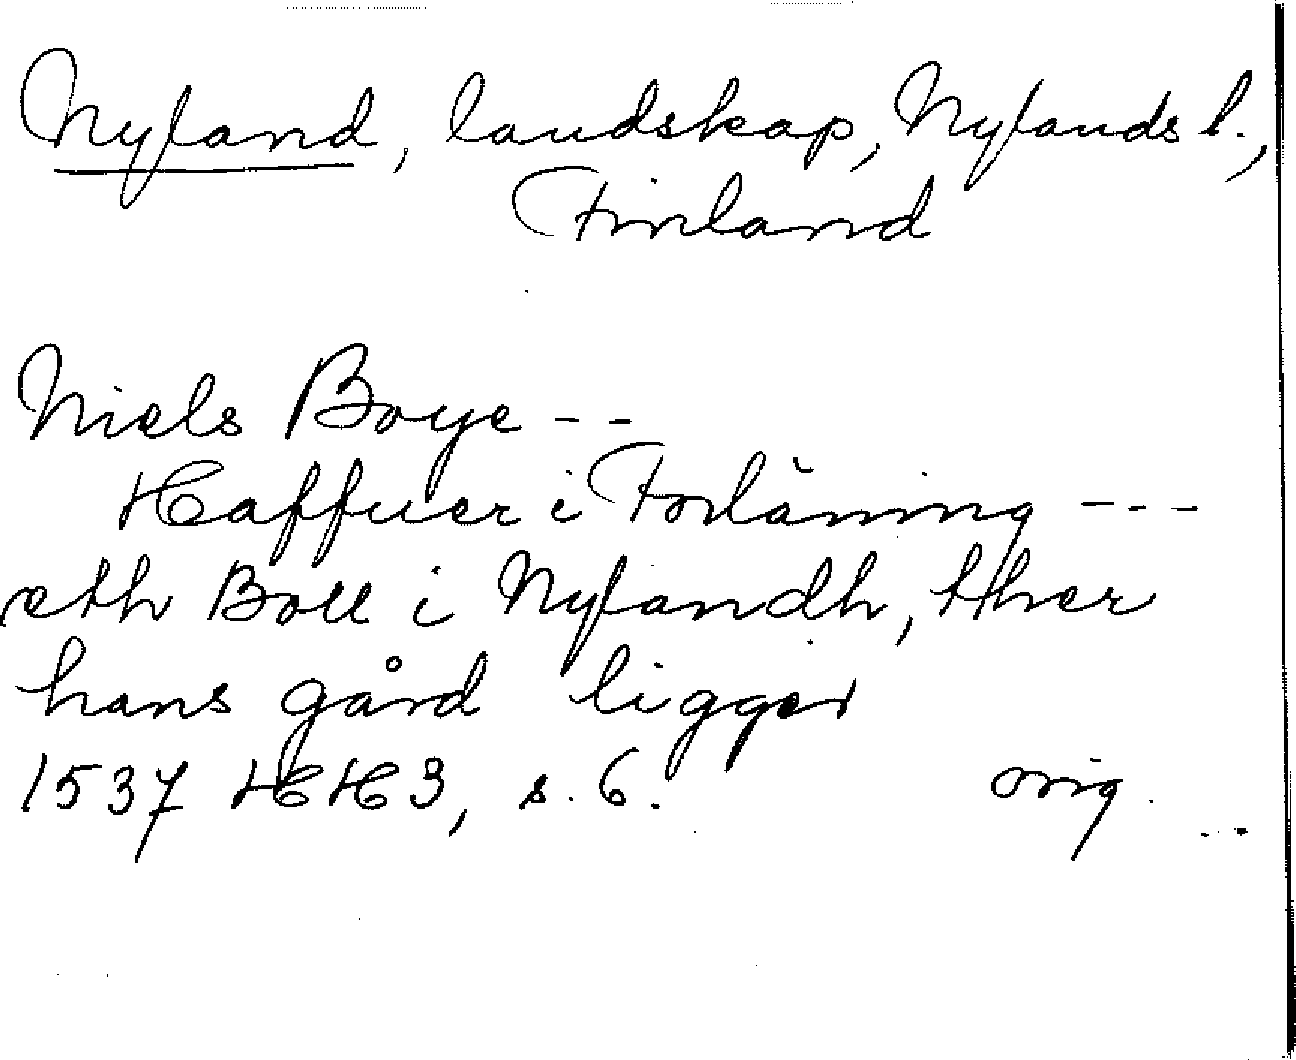 Nyland, landskap, Nylands l.,
Finland
Niels Boye - -
Haffuer i Forläning - - -
eth Boll i Nylandh, ther
hans gård ligger
1537 HH 3, s. 6. orig.